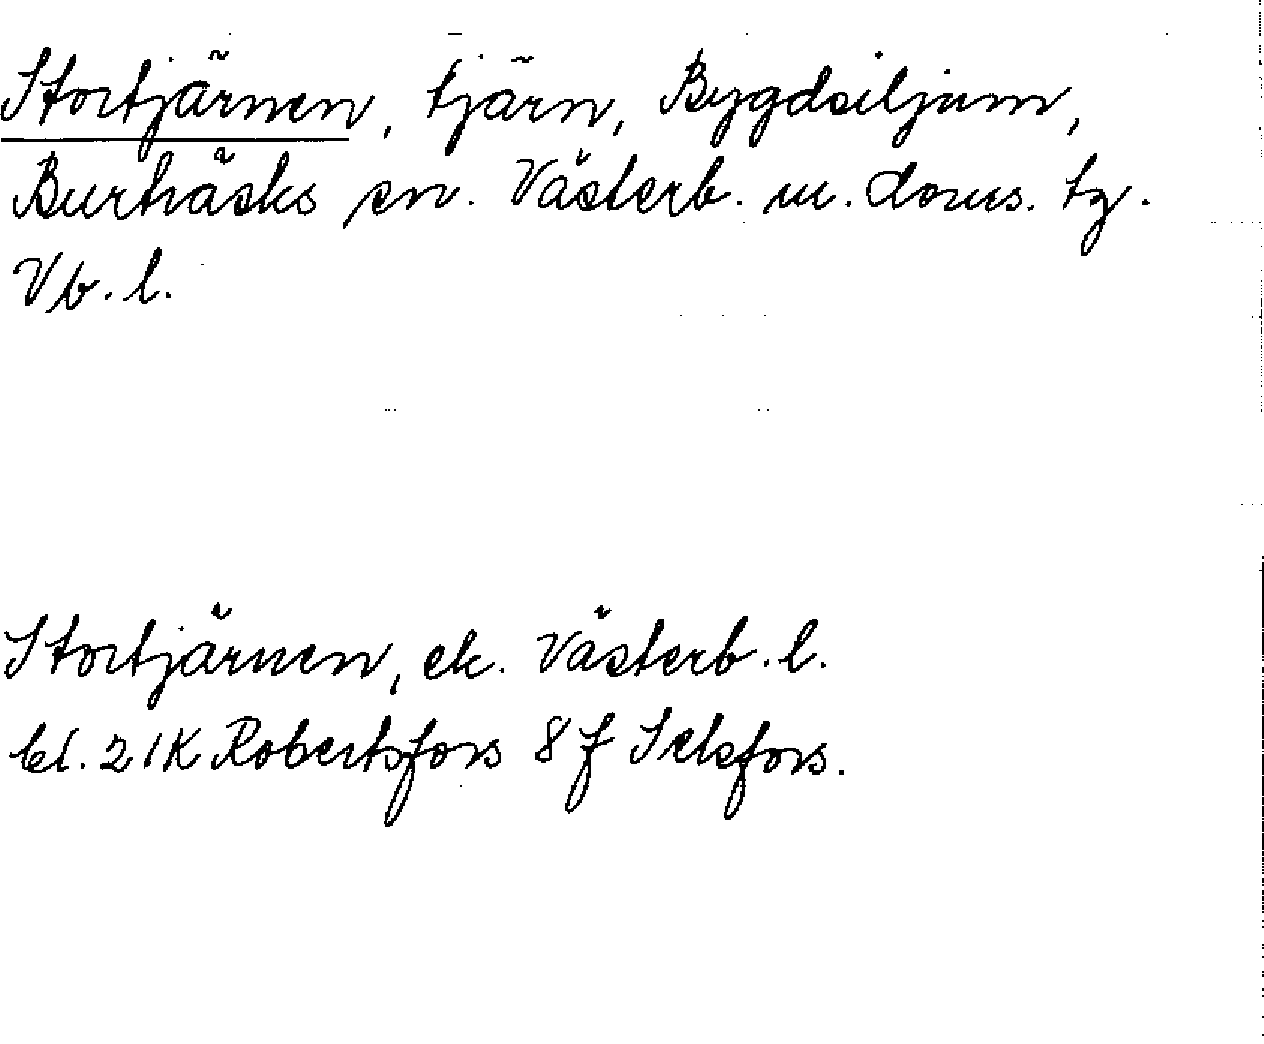 Stortjärnen, tjärn, Bygdsiljum,
Burträsks sn. Västerb. m. doms. tg.
Vb. l.
Stortjärnen, ek. Västerb. l.
bl. 21K Robertsfors 8 f Selsfors.